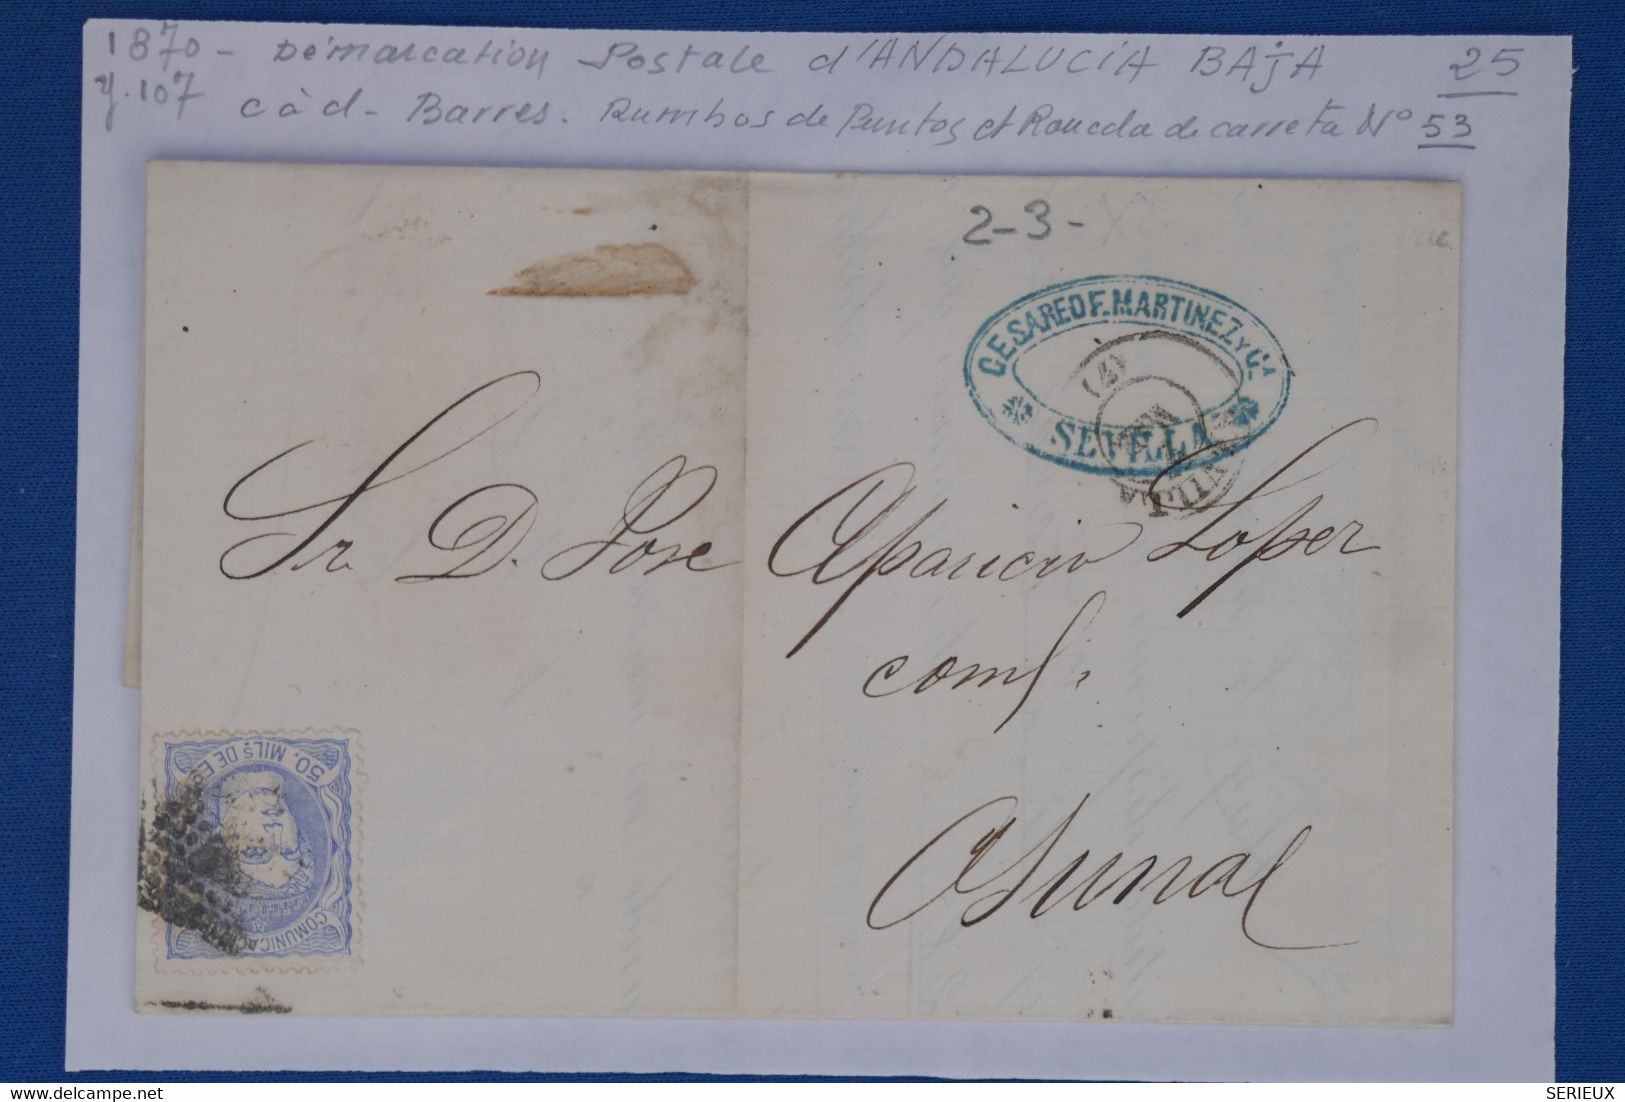 1870 - Démarcation Postale d'ANDALUCIA BAJA 25
y. 107 c à d - Barres. Rumbos de Puntos et Roueda de carreta Nº 53
2-3-
CESAREO F. MARTINEZ Y CA
SEVILLA
(7)
SEVILLA
Sr. D. Jose Aparicio Lopez
comf.
Osuna
50. MILS DE E
COMUNICACION
SERIEUX